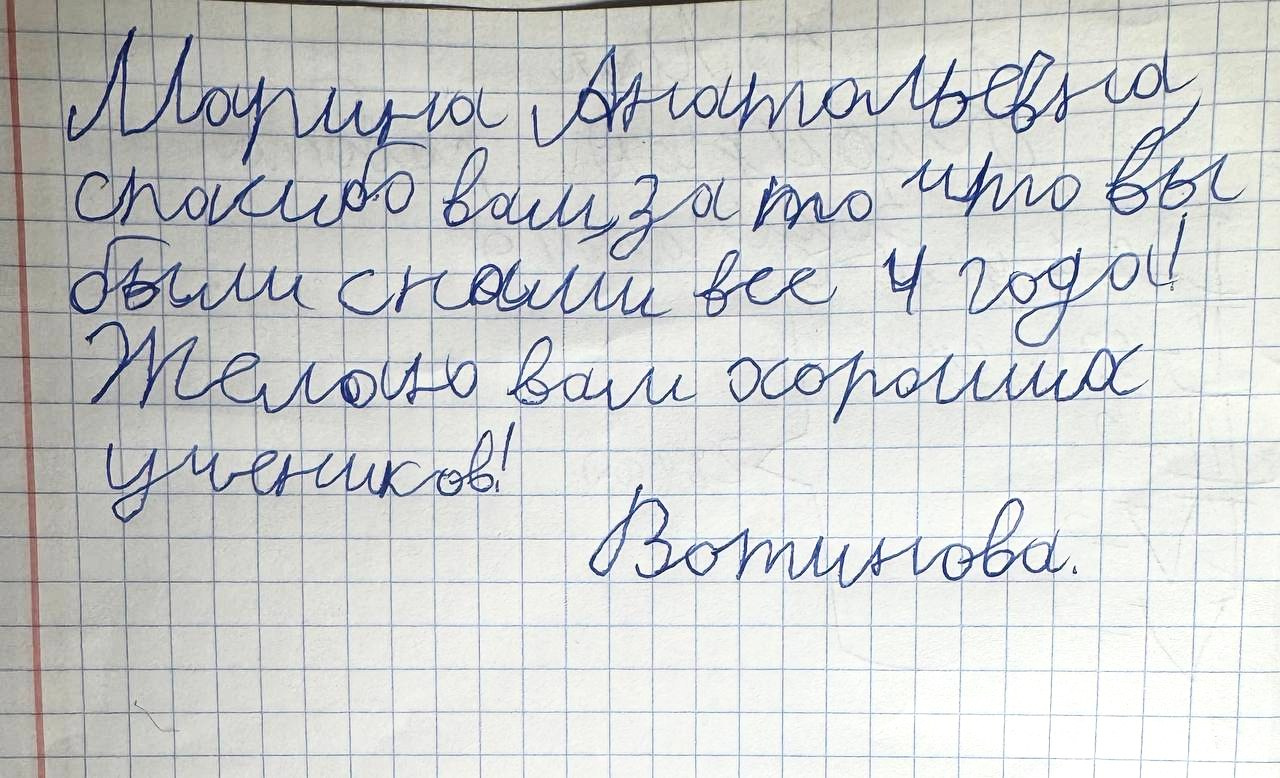 Марина Анатальевна
спасибо вам, за то что вы
были снами все 4 года!
Желаю вам хороших
учеников!
Вотинова.